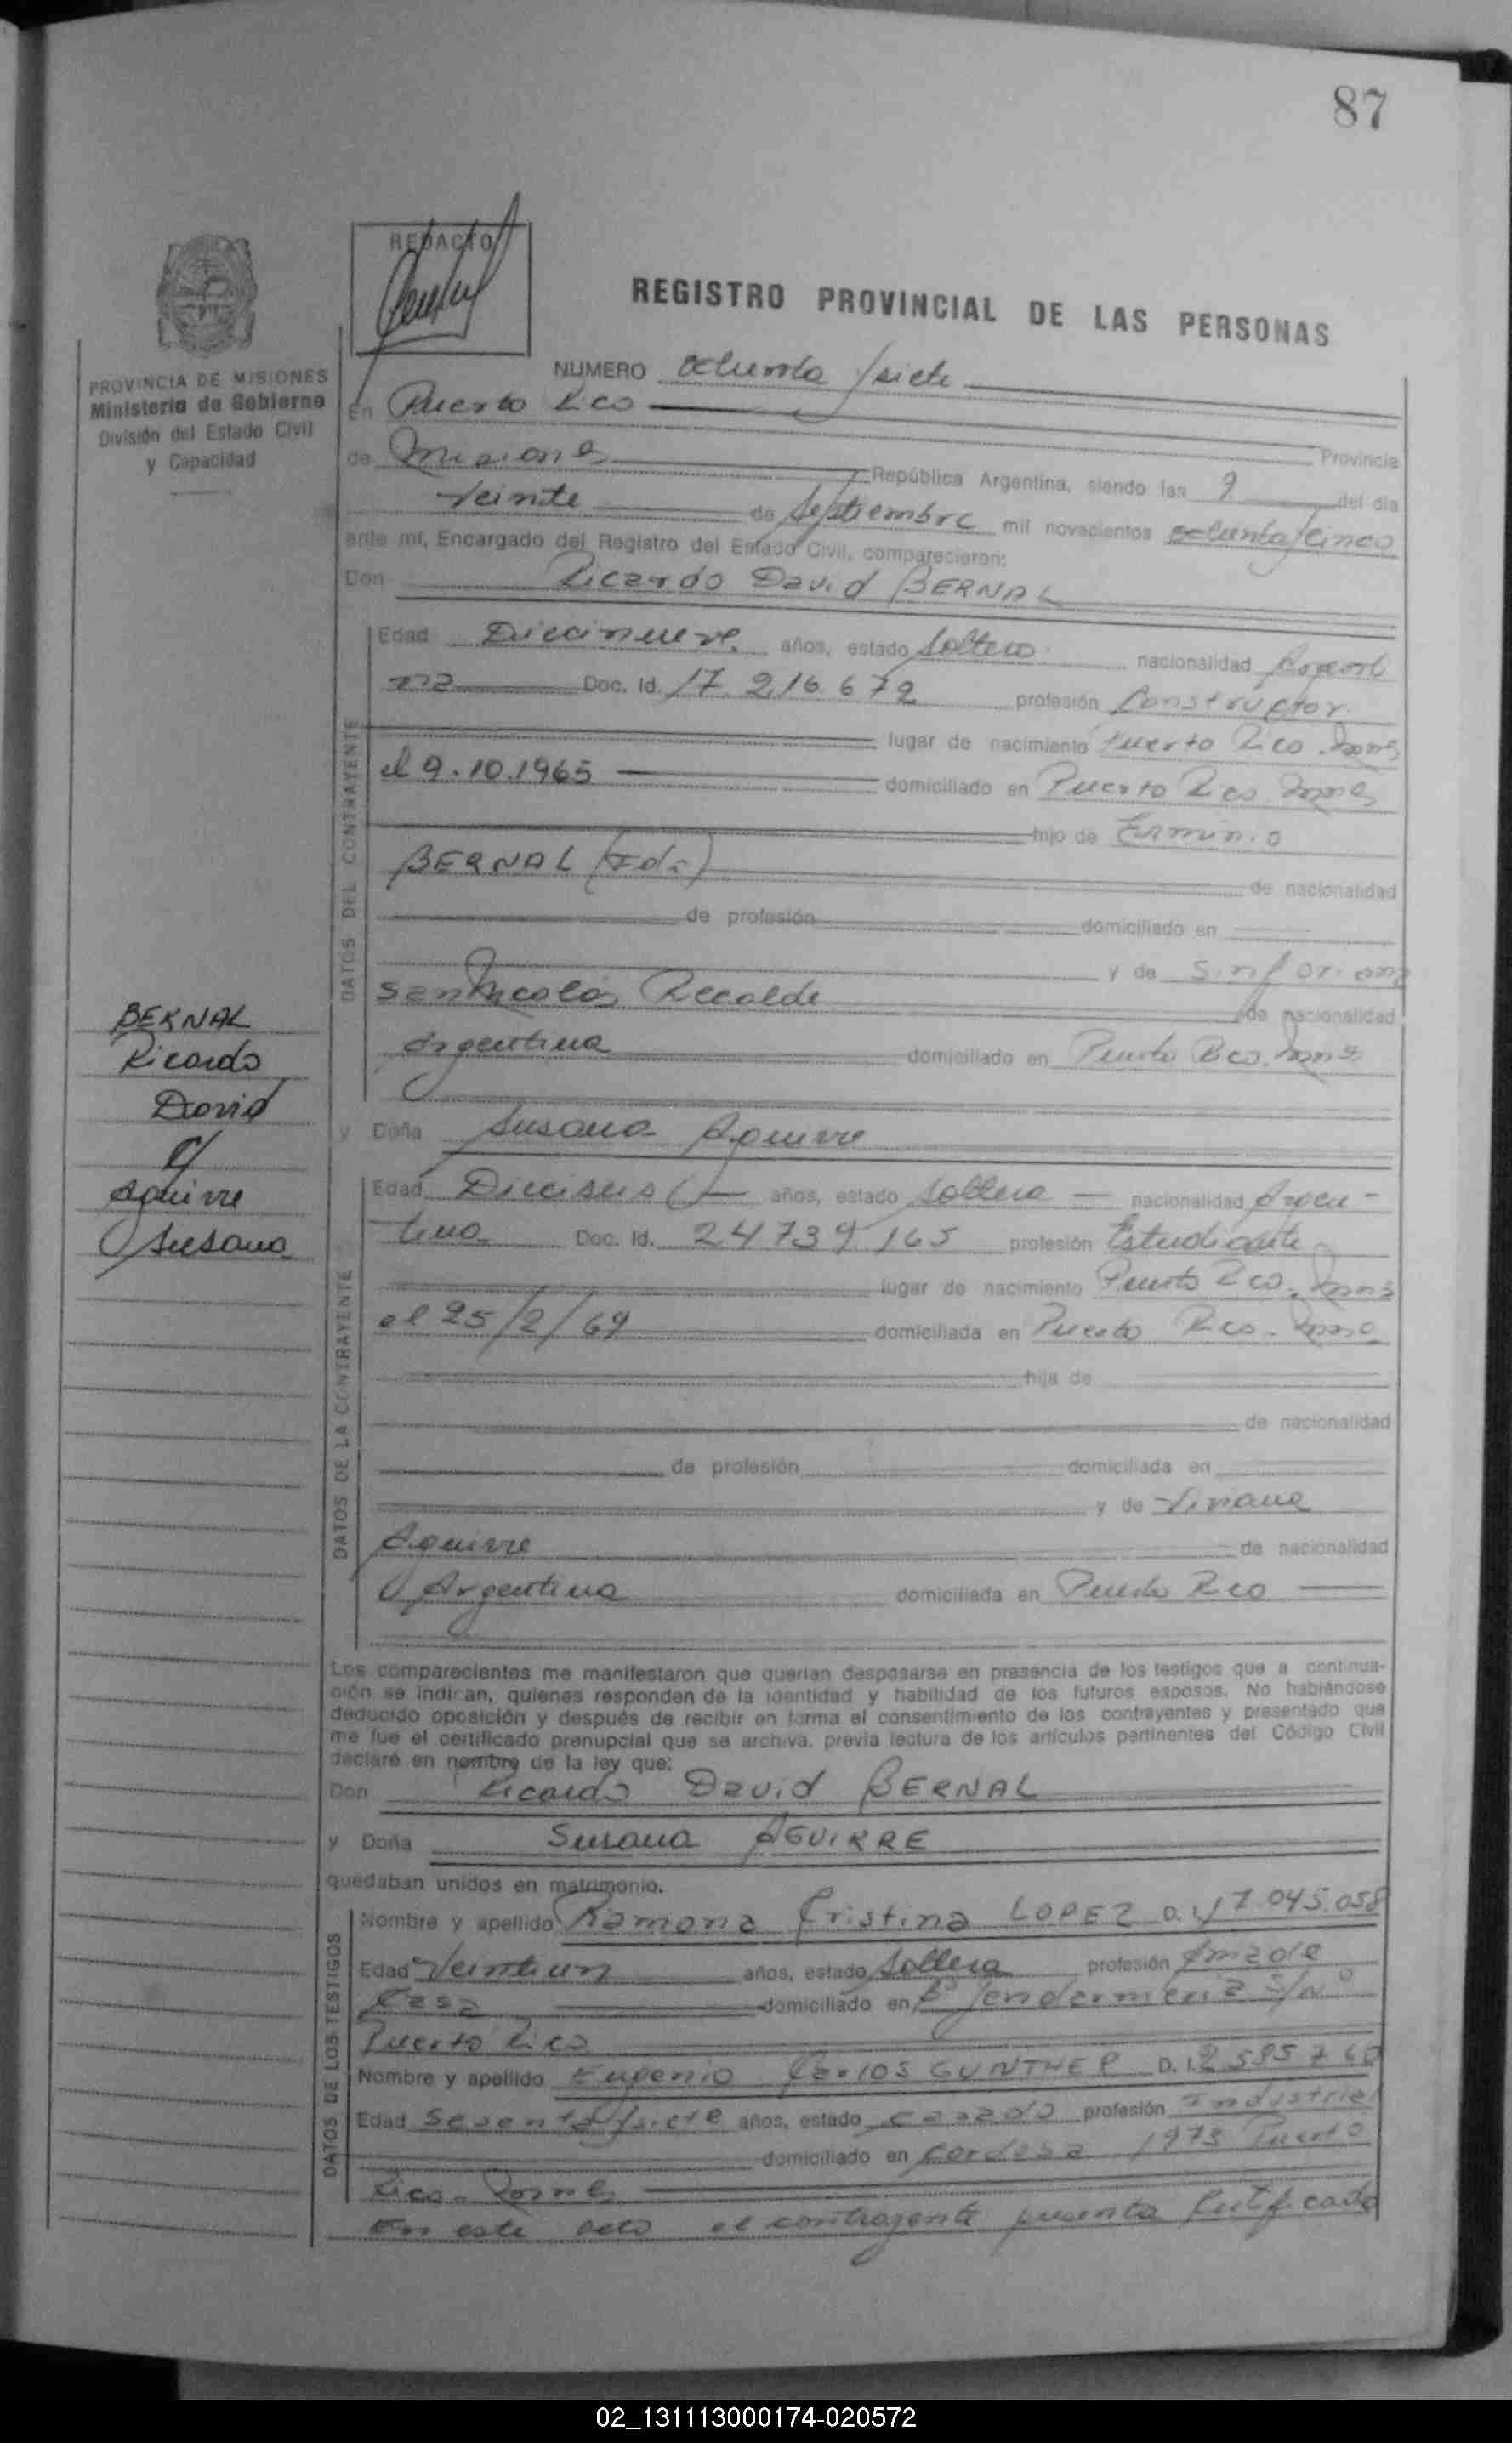 87
REDACTO
REGISTRO PROVINCIAL DE LAS PERSONAS
PROVINCIA DE MISIONES
Ministerio de Gobierno
División del Estado Civil
y Capacidad
NUMERO ochenta /siete
En Puerto Rico
Provincia
de Misiones República Argentina, siendo las 9 del día
veinte de septiembre mil novecientos ochenta/cinco
ante mí, Encargado del Registro del Estado Civil, comparecieron:
Don Ricardo David BERNAL
DATOS DEL CONTRAYENTE
Edad Diecinueve años, estado soltero nacionalidad Argenti
na Doc. Id. 17.216.672 profesión Constructor
lugar de nacimiento Puerto Rico. Mnes
el 9.10.1965 domiciliado en Puerto Rico Mnes
hijo de Erminio
BERNAL (Fdo) de nacionalidad
de profesión domiciliado en
y de Sinforiana
Recalde de nacionalidad
Argentina domiciliado en Puerto Rico. Mnes
BERNAL
Ricardo
David
c/
Aguirre
Susana
y Doña Susana Aguirre
DATOS DE LA CONTRAYENTE
Edad Dieciseis años, estado soltera nacionalidad Argen-
tina Doc. Id. 24739165 profesión Estudiante
lugar de nacimiento Puerto Rico. Mnes
el 25/2/69 domiciliada en Puerto Rico. Mnes
hija de
de nacionalidad
de profesión domiciliada en
y de Viviana
Aguirre de nacionalidad
Argentina domiciliada en Puerto Rico
Los comparecientes me manifestaron que querían desposarse en presencia de los testigos que a continua-
ción se indican, quienes responden de la identidad y habilidad de los futuros esposos. No habiéndose
deducido oposición y después de recibir en forma el consentimiento de los contrayentes y presentado que
me fue el certificado prenupcial que se archiva, previa lectura de los artículos pertinentes del Código Civil
declaré en nombre de la ley que:
Don Ricardo David BERNAL
y Doña Susana AGUIRRE
quedaban unidos en matrimonio.
DATOS DE LOS TESTIGOS
Nombre y apellido Ramona Cristina LOPEZ D.I. 17.045.058
Edad Veintiun años, estado soltera profesión Ama de
Casa domiciliado en Bº Gendarmeria S/Nº
Puerto Rico
Nombre y apellido Eugenio Carlos GUNTHER D.I. 2585760
Edad Sesenta/siete años, estado casado profesión Industrial
domiciliado en Cordoba 1973 Puerto
Rico. Mnes
En este acto el contrayente presenta Certificado
02_131113000174-020572